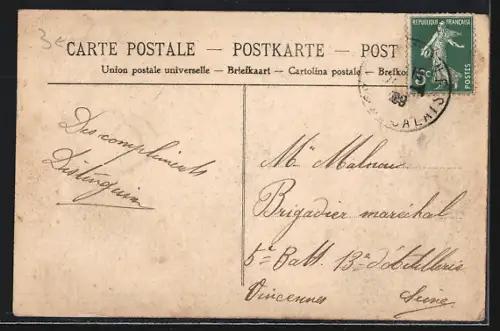 3€
CARTE POSTALE — POSTKARTE — POST
Union postale universelle — Briefkaart — Cartolina postale — Brefko
RÉPUBLIQUE FRANÇAISE
5c
POSTES
09
CALAIS
Des compliments
Distingués
Mr Malnou
Brigadier maréchal
5e Batt. 13e d'Artillerie
Vincennes Seine